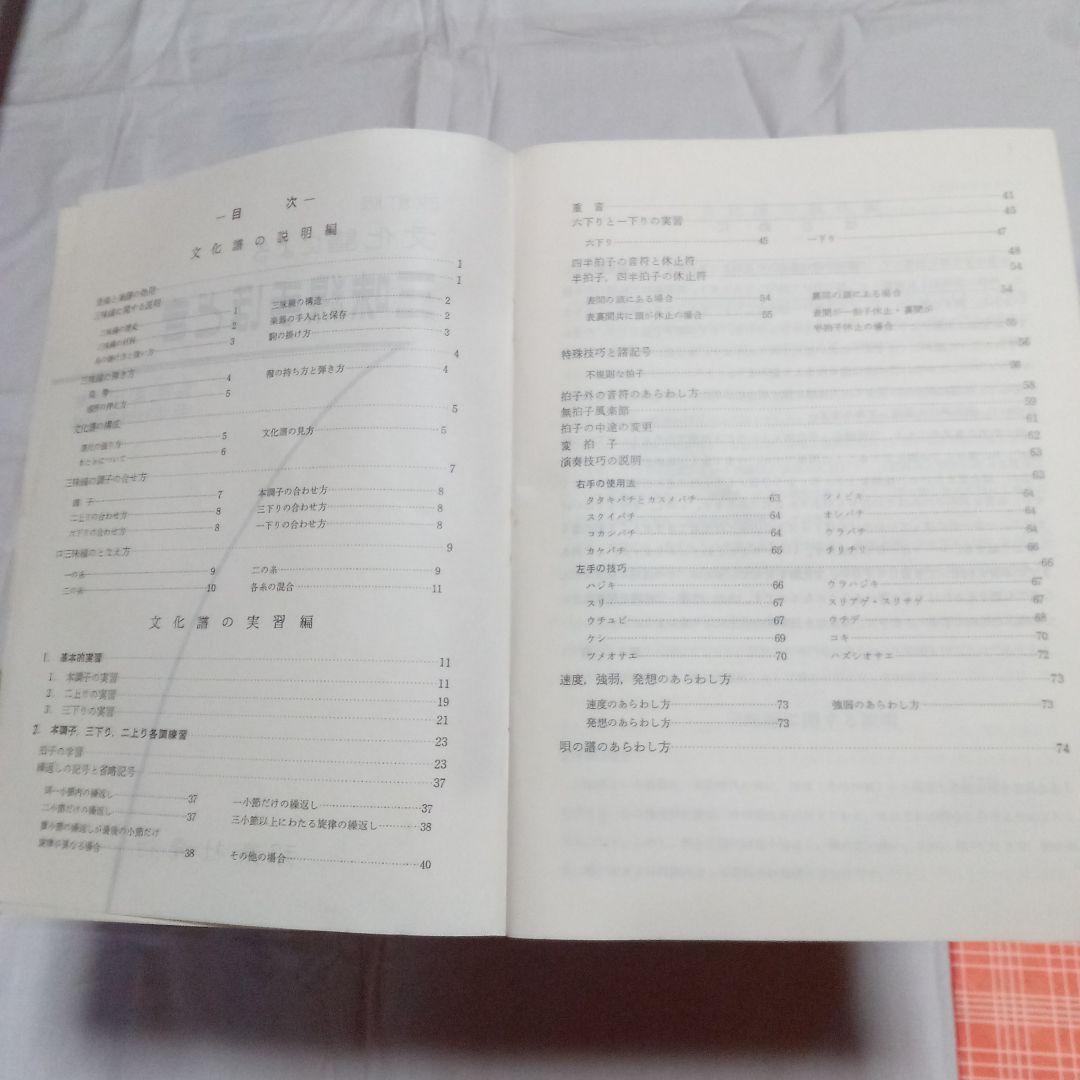 ―目 次―
文化譜の説明編
1
三味線に関する説明 1
三味線の歴史 1 三味線の構造 2
三味線の材料 2 楽器の手入れと保存 2
3 駒の掛け方 3
三味線の弾き方 4
姿勢 4 撥の持ち方と弾き方 4
勘所の押え方 5
文化譜の構成 5
5 文化譜の見方 5
について 6
三味線の調子の合せ方 7
調子 7 本調子の合わせ方 8
二上りの合わせ方 8 三下りの合わせ方 8
六下りの合わせ方 8 一下りの合わせ方 8
口三味線のとなえ方 9
一の糸 9 二の糸 9
三の糸 10 各糸の混合 11
文化譜の実習編
1. 基本的実習 11
1. 本調子の実習 11
2. 二上りの実習 19
3. 三下りの実習 21
2. 本調子，三下り，二上り各調練習 23
拍子の学習 23
繰返しの記号と省略記号 37
同一小節内の繰返し 37 一小節だけの繰返し 37
二小節だけの繰返し 37 三小節以上にわたる旋律の繰返し 38
小節の繰返しが最後の小節だけ
旋律が異なる場合 38 その他の場合 40
重音 43
六下りと一下りの実習 45
六下り 45 一下り 47
四半拍子の音符と休止符 48
半拍子，四半拍子の休止符 54
表間の頭にある場合 54 裏間の頭にある場合 54
表裏間共に頭が休止の場合 55 表間が一拍子休止・裏間が
半拍子休止の場合 55
特殊技巧と諸記号 56
不規則な拍子 56
拍子外の音符のあらわし方 58
無拍子風楽節 59
拍子の中途の変更 61
変拍子 62
演奏技巧の説明 63
右手の使用法 63
タタキバチとカスメバチ 63 ツメビキ 64
スクイバチ 64 オシバチ 64
コカンバチ 64 ウラバチ 64
カケバチ 65 チリチリ 66
左手の技巧 66
ハジキ 66 ウラハジキ 67
スリ 67 スリアゲ・スリサゲ 67
ウチユビ 67 ウチデ 68
ケシ 69 コキ 70
ツメオサエ 70 ハズシオサエ 72
速度，強弱，発想のあらわし方 73
速度のあらわし方 73 強弱のあらわし方 73
発想のあらわし方 73
唄の譜のあらわし方 74